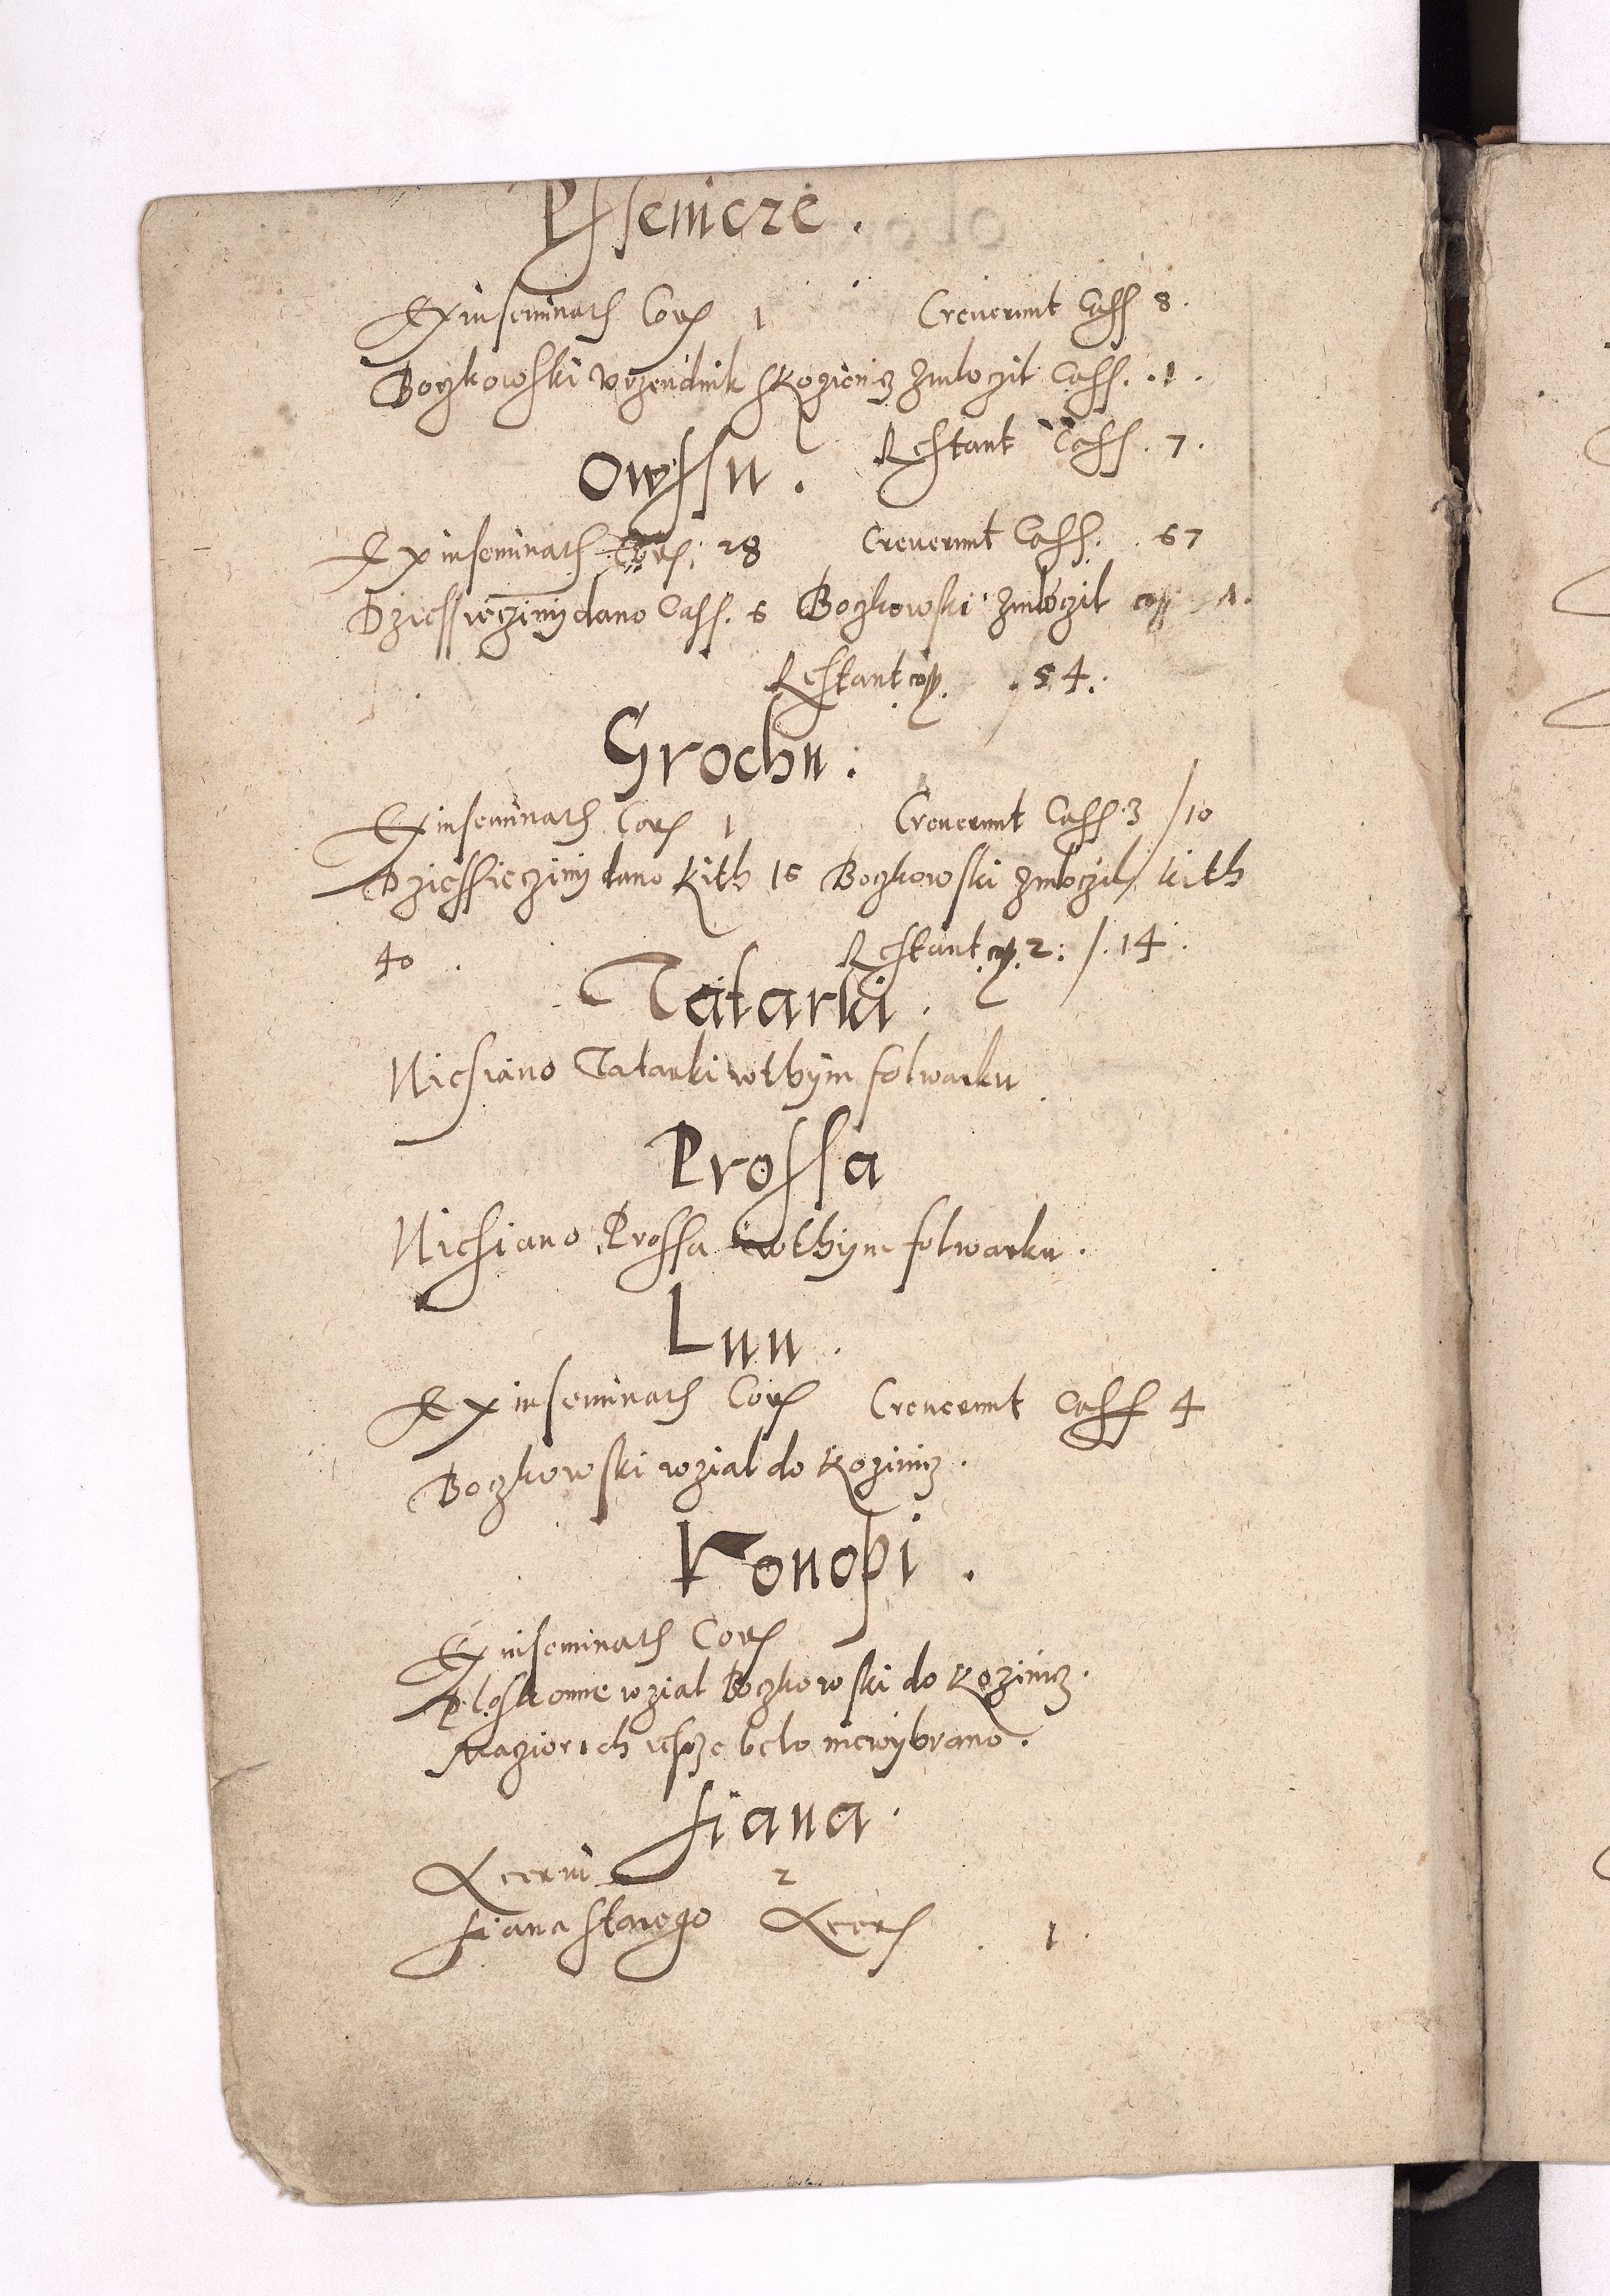 Pssenicze.
Exinseminath Cor 1 Creuerunt Cass 8.
Boczkowski vrzendnik sKozienicz zmloczil Cass. 1.
Restant Cass. 7.
Owssu.
Exinseminath Cor. 28 Creuerunt Cass. 67
Dziessięcziny dano Cass. 6 Boczkowski zmloczil cop
Restant cop. 54.
Grochu:
Exinseminath Cor 1 Creuerunt Cass. 3 /10
Dziessięcziny dano kith 16 Boczkowski zmloczil kith
40. Restant cop. 2: /. 14.
Tatarki.
Niesiano Tatarki wthym folwarku
Prossa
Niesiano Prossa wthym folwarku.
Lnu.
Exinseminath Cor Creuerunt Cass 4
Boczkowski wzial do Kozinicz.
Konopi.
Exinseminath Cor
Ploskonne wzial Boczkowski do Kozinicz.
Maziorich iescze belo niewybrano.
Siana.
Acerui 2
Siana starego Aceru . 1.